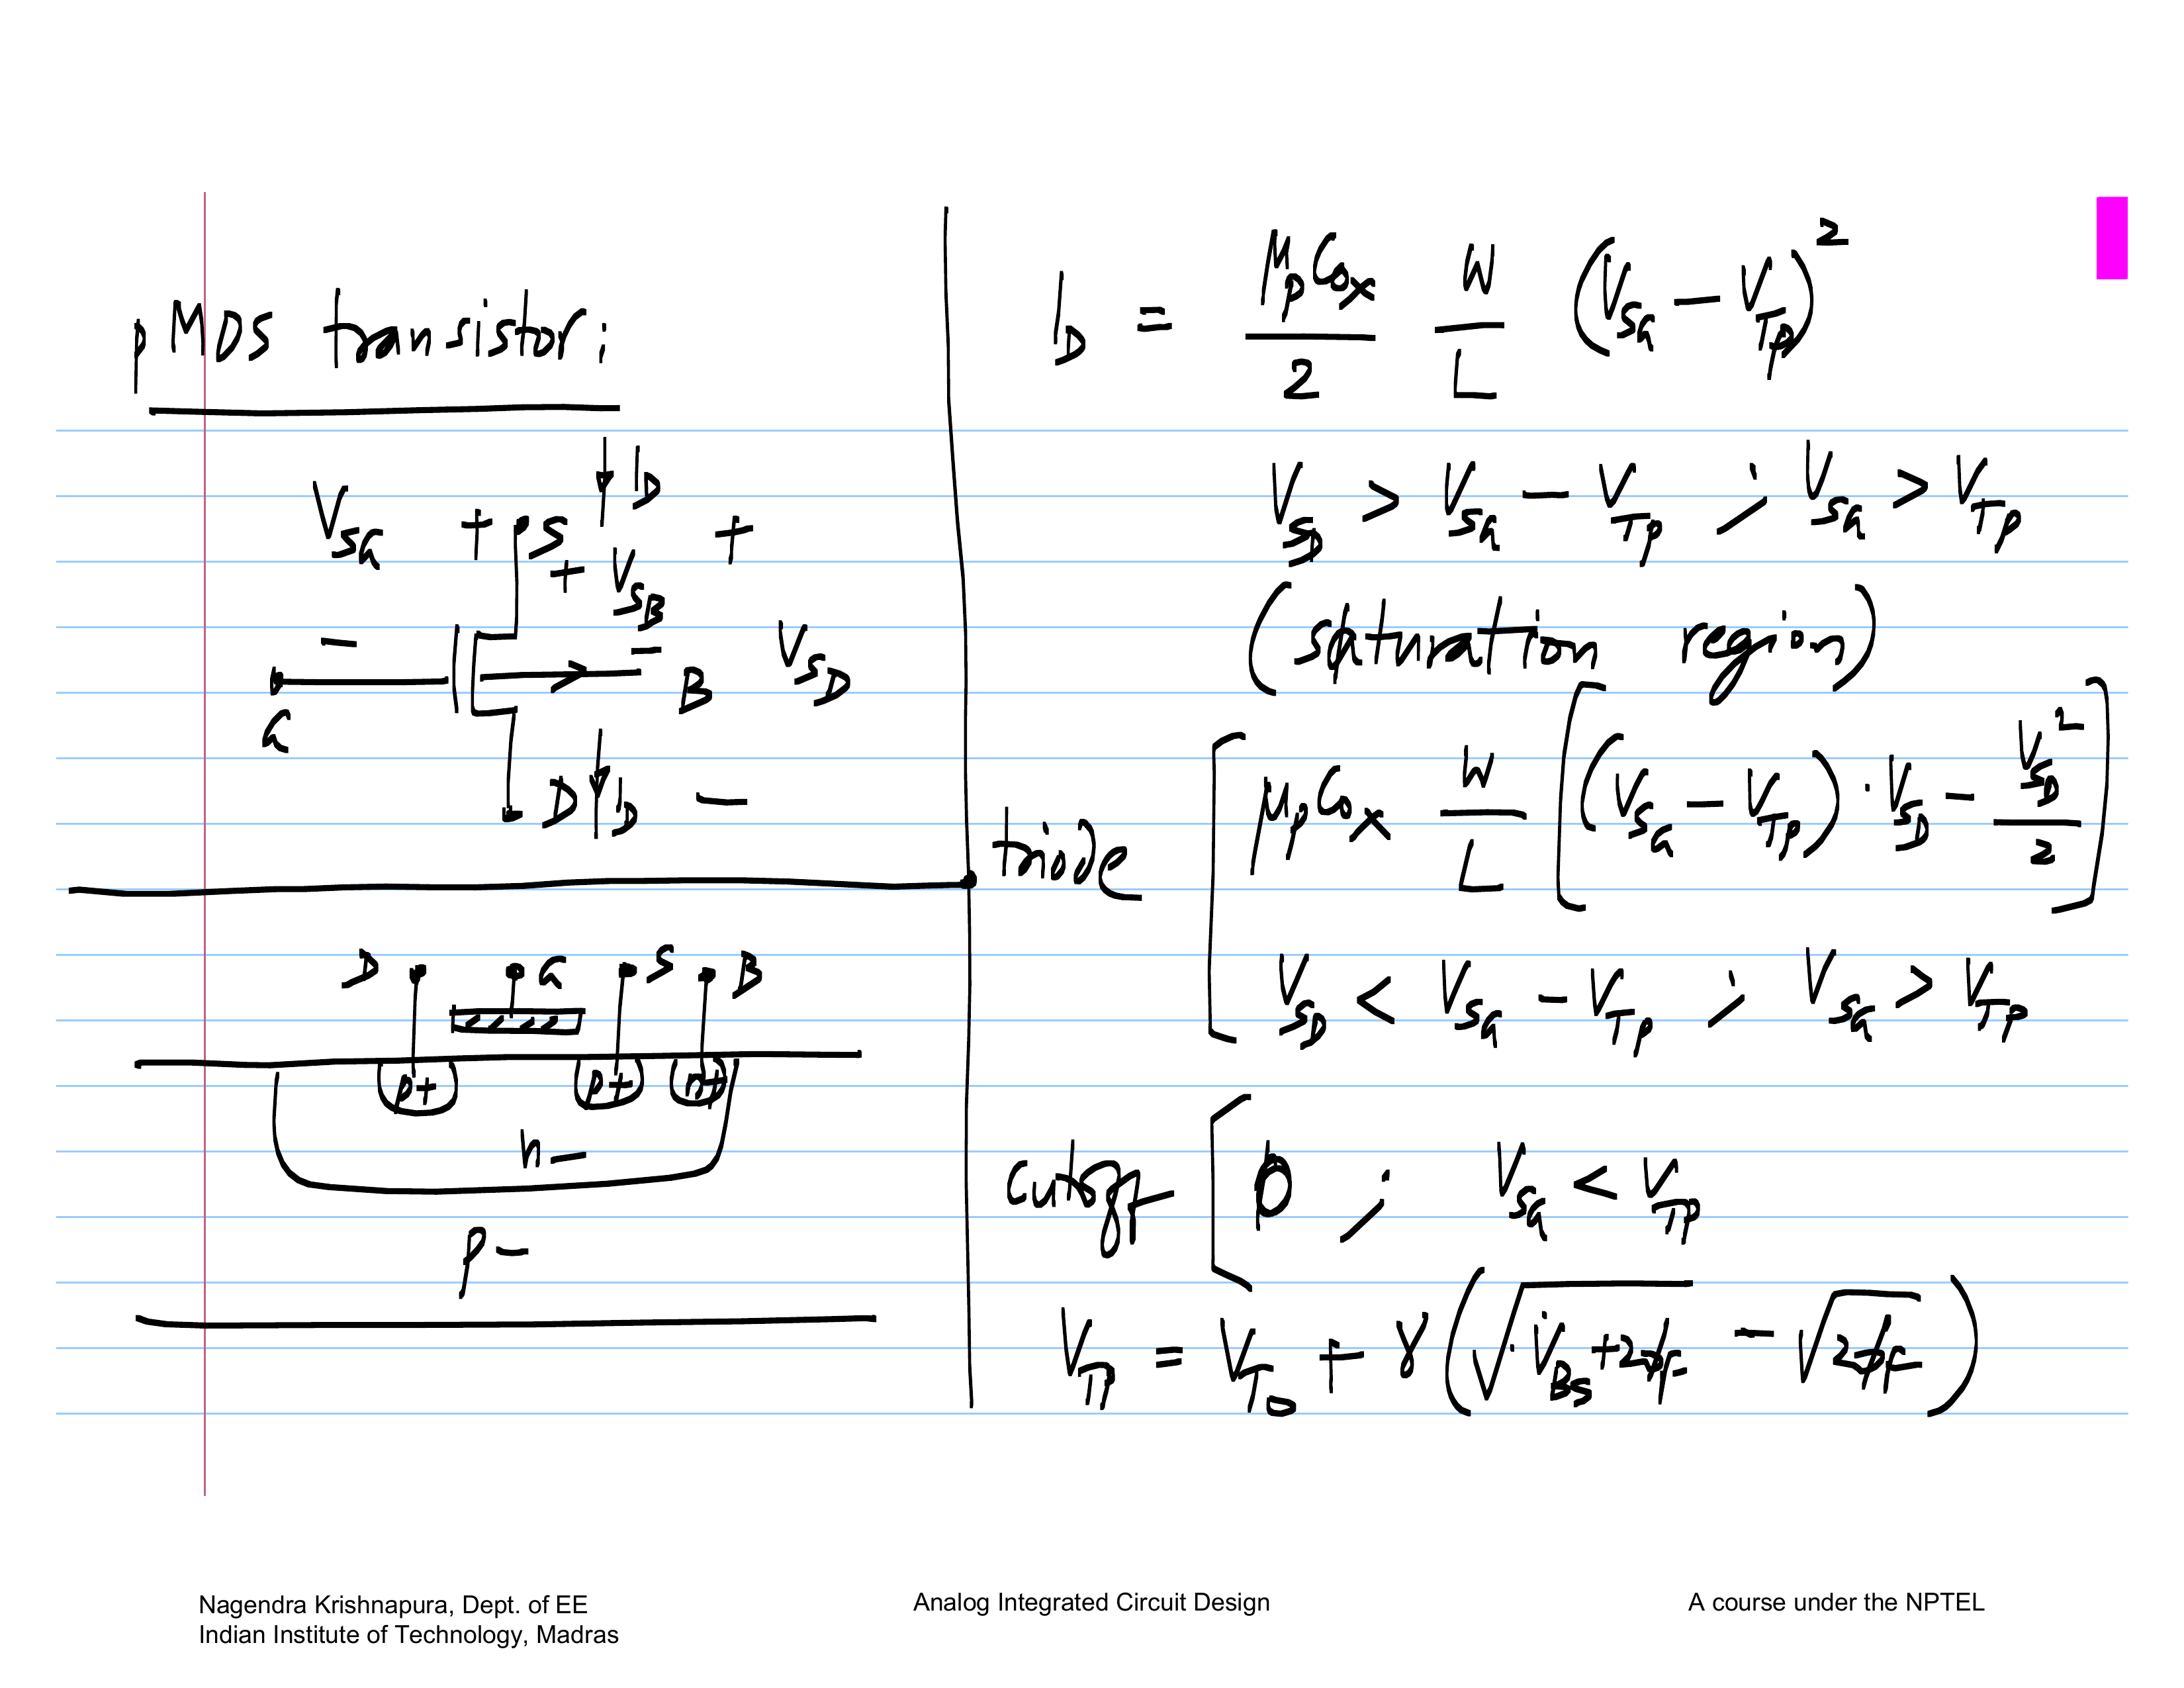 pMOS transistor:
V_SG + S I_D +
+ V_SB
− − B V_SD
G
D I_D −
D G S B
p+ p+ n+
n−
p−
I_D = μ_p C_ox / 2 W / L (V_SG − V_Tp)^2
V_SD > V_SG − V_Tp ; V_SG > V_Tp
(saturation region)
triode [ μ_p C_ox W / L [ (V_SG − V_Tp) · V_SD − V_SD^2 / 2 ]
V_SD < V_SG − V_Tp ; V_SG > V_Tp
cutoff [ 0 ; V_SG < V_Tp
V_Tp = V_T0 + γ ( √(V_BS + 2φ_F) − √(2φ_F) )
Nagendra Krishnapura, Dept. of EE
Indian Institute of Technology, Madras
Analog Integrated Circuit Design
A course under the NPTEL